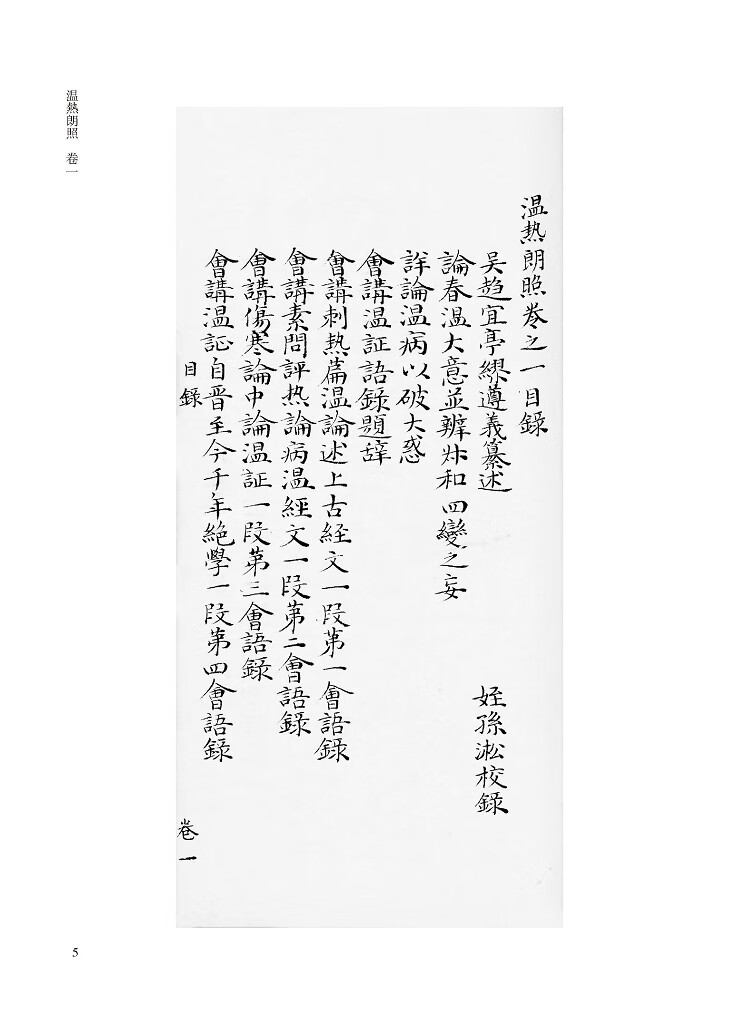 温熱朗照 卷一
温热朗照卷之一目錄
吴趋宜亭繆遵義纂述 姪孫淞校錄
論春温大意並辨炑和四變之妄
詳論温病以破大惑
會講温証語錄題辞
會講刺热篇温論述上古経文一段第一會語錄
會講素問評热論病温經文一段第二會語錄
會講傷寒論中論温証一段第三會語錄
會講温証自晋至今千年絶學一段第四會語錄
目錄 卷一
5